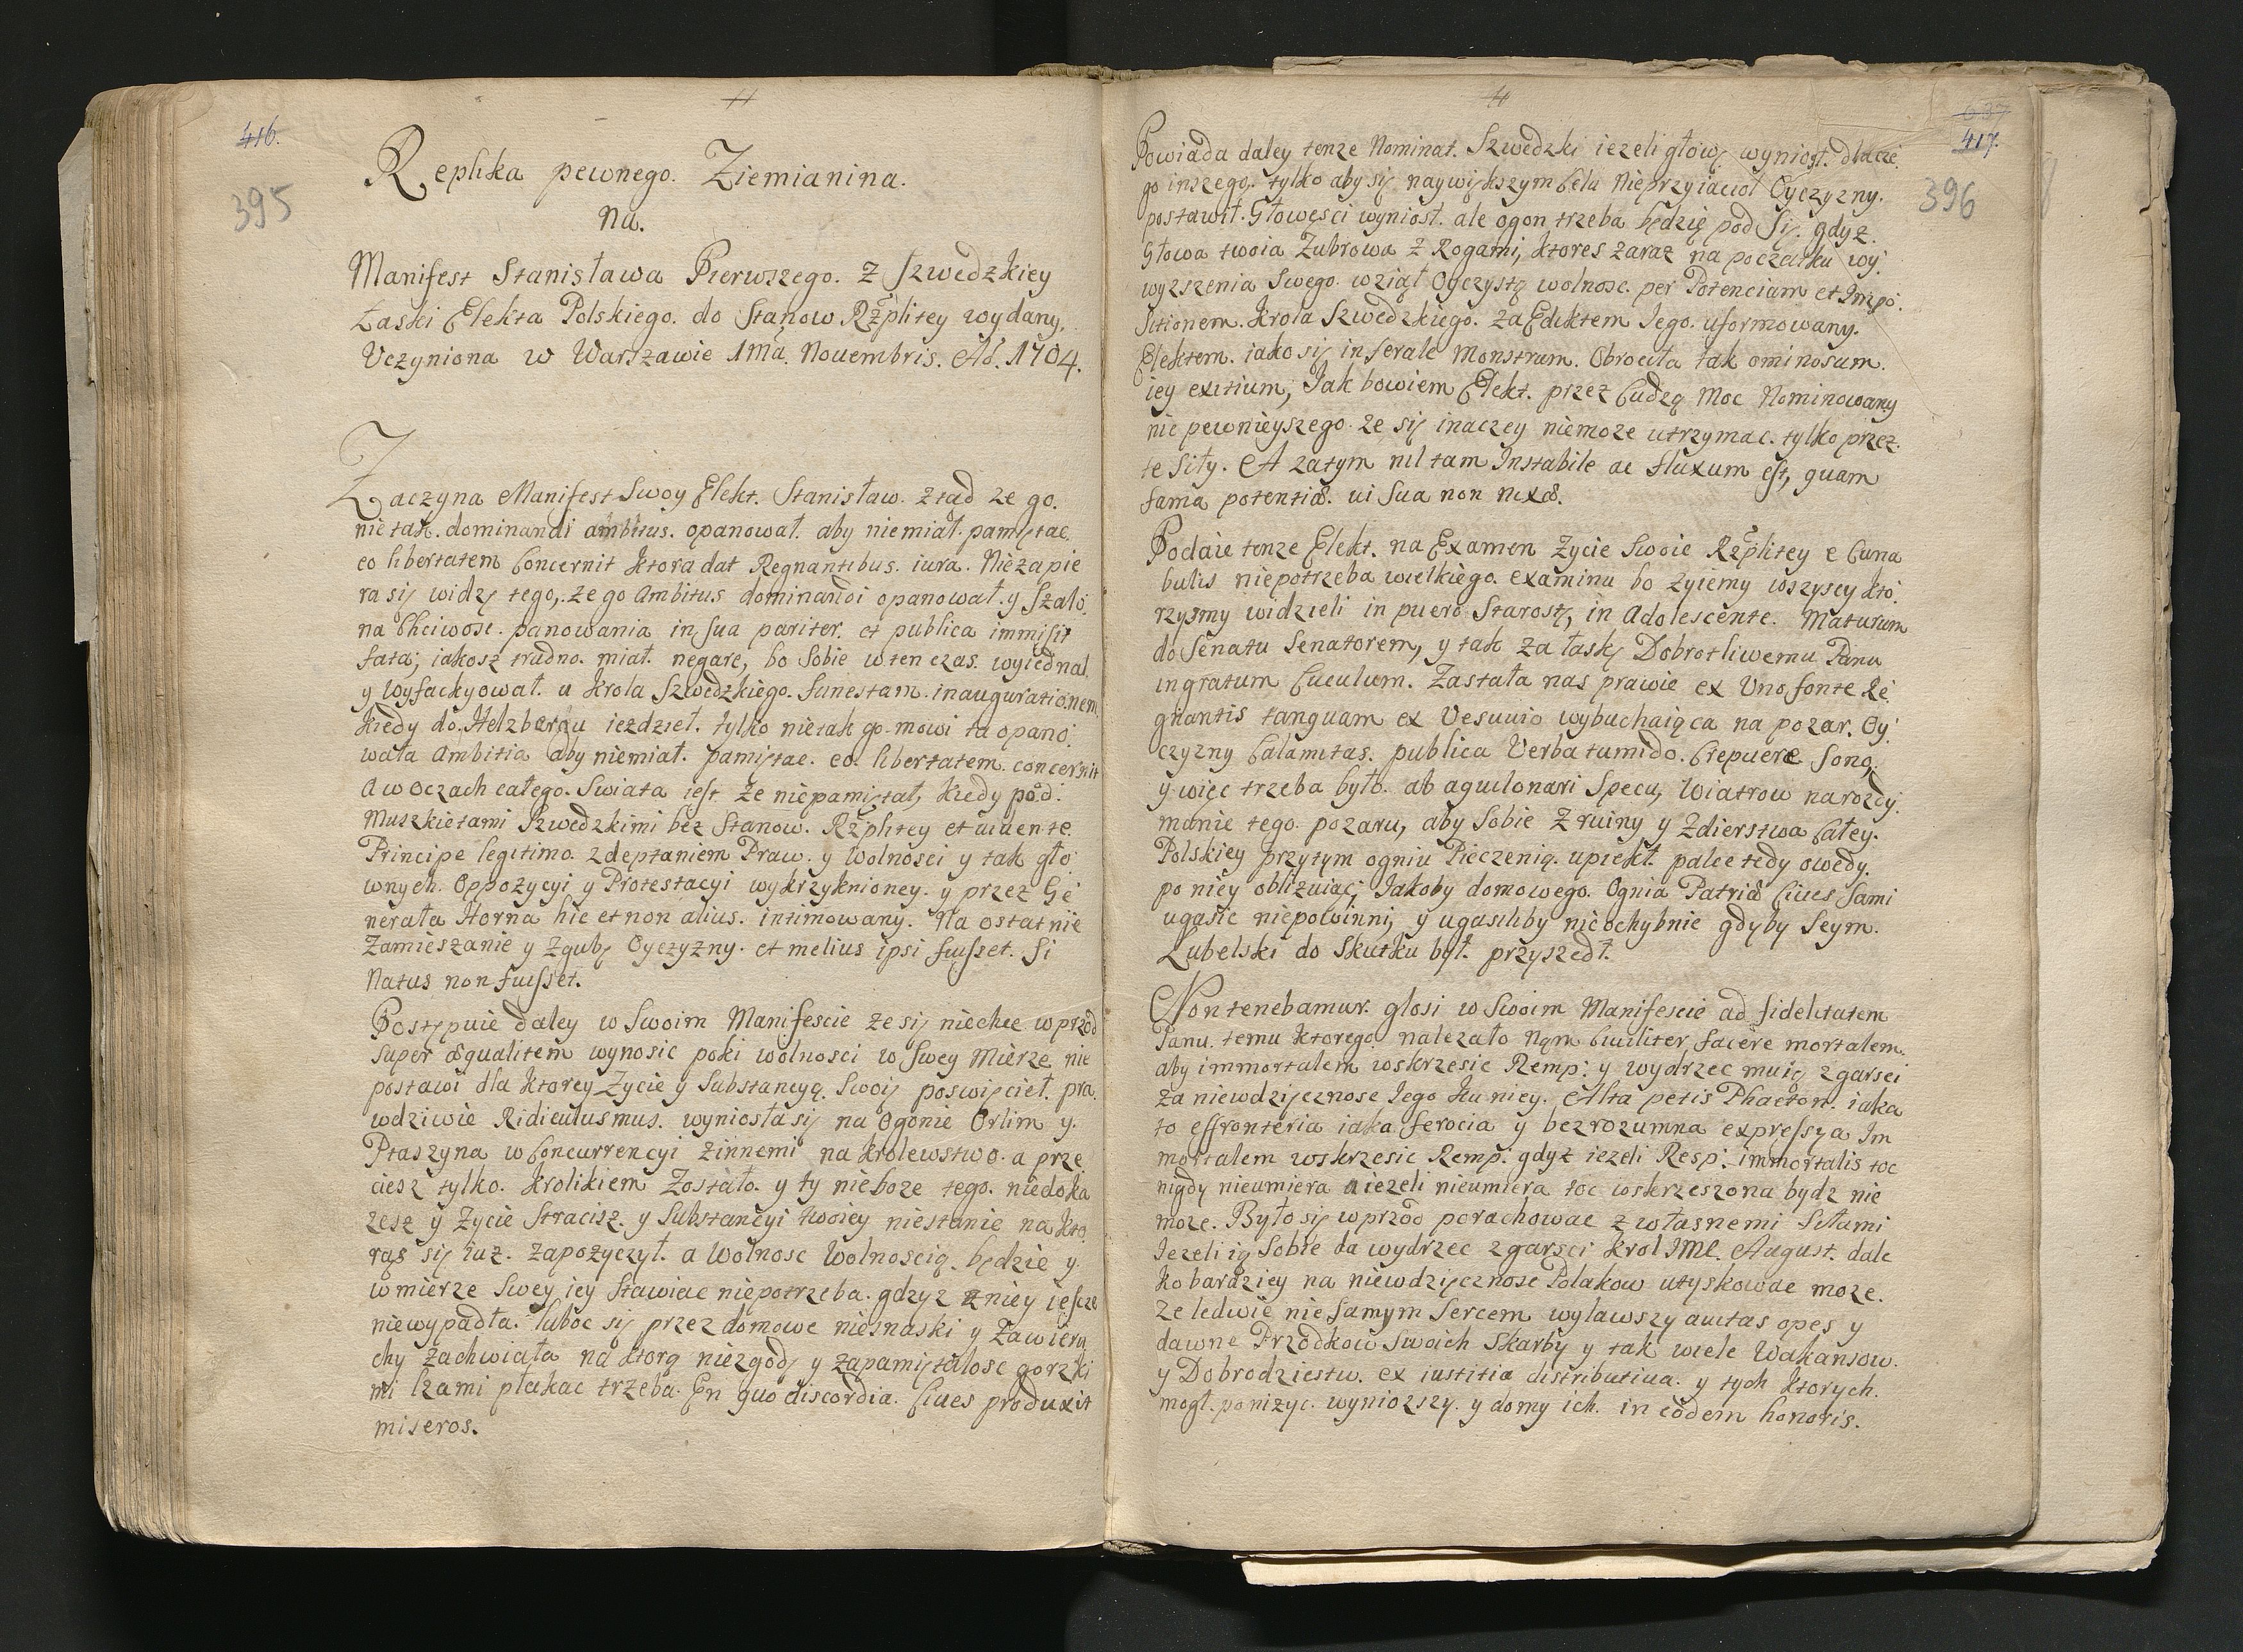 416.
395
Replika pewnego. Ziemianina.
Na.
Manifest Stanisława Pierwszego. z Szwedzkiey
Łaski Elekta Polskiego. do Stanow Rzplitey wydany.
Uczyniona w Warszawie 1ma Novembris. Ao. 1704.
Zaczyna Manifest Swoy Elekt. Stanisław. ztąd ze go.
nie tak. dominandi ambitus. opanował. aby nie miał. pamiętac.
eo libertatem Concernit ktora dat Regnantibus. iura. Nie zapie
ra się widzę tego, ze go Ambitus dominandi opanował. y Szalo.
na Chciwosc. panowania in sua pariter. et publica immisit
fata; iakosz trudno. miał. negare, bo Sobie w ten czas. wyiednał
y wyfackyował. u Krola Szwedzkiego. funestam. inaugurationem
Kiedy do. Helzbergu iezdzieł. tylko nie tak go. mowi ta opano.
wała Ambitia aby niemiał. pamiętac. eo. libertatem. concernit
A w Oczach całego. Swiata iest ze niepamiętał, kiedy pod.
Muszkietami Szwedzkimi bez Stanow. Rzplitey et vivente.
Principe legitimo. zdeptaniem Praw. y Wolnosci y tak gło
wnych. Oppozycyi y Protestacyi wykrzyknioney. y przez Ge
nerała Horna hic et non alius. intimowany. Na ostatnie
Zamieszanie y Zgubę Oyczyzny. et melius ipsi fuisset. Si
Natus non fuisset.
Postępuie daley w Swoim Manifescie ze się niechce w przod
super æqualitem wynosic poki wolnosci w Swey Mierze nie
postawi dla ktorey Zycie y Substancyą. Swoię poswięcieł. pra.
wdziwie Ridiculus mus. wyniosła się na Ogonie Orlim y.
Ptaszyna w Concurrencyi z innemi na krolewstwo. a prze
ciesz tylko. krolikiem Zostało. y ty nieboze tego. niedoka
zesz y Zycie Stracisz. y Substancyi twoiey niestanie na kto
rąs się iuz. zapozyczył. a Wolnosc Wolnoscią. będzie y
w mierze Swey iey Stawiac niepotrzeba. gdyz z niey iescze
niewypadła. luboc się przez domowe niesnaski y Zawieru
chy zachwiała na ktorą niezgodę y zapamiętałosc gorzki
mi łzami płakac trzeba. En quo discordia. Cives produxit
miseros.
417.
396
Powiada daley tenze Nominat. Szwedzki iezeli głowę wyniosł. dlacze.
go inszego. tylko aby się naywiększym Celu Nieprzyiacioł Oyczyzny.
postawił. Głowęsci wyniosł. ale ogon trzeba będzie pod Się. gdyz.
Głowa twoia Zubrowa z Rogami, ktores zaraz na początku wy.
wyzszenia Swego. wziął Oyczystą wolnosc. per Potenciam et Impo.
sitionem. Krola Szwedzkiego. za Ediktem Iego. uformowany.
Elektem. iako się in ferale Monstrum. Obrociła tak ominosum.
iey exitium; Jak bowiem Elekt. przez Cudzą Moc Nominowany
nic pewnieyszego. ze się inaczey niemoze utrzymac. tylko przez.
te Siły. A zatym nil tam Instabile ac fluxum est, quam
fama potentiæ. vi sua non nixæ.
Podaie tenze Elekt. na Examen Zycie Swoie Rzplitey e Cuna
bulis niepotrzeba wielkiego. examinu bo zyiemy wszyscy kto.
rzysmy widzieli in puero Starostę, in Adolescente. Maturum
do Senatu Senatorem, y tak za łaskę Dobrotliwemu Panu
ingratum Cuculum. Zastała nas prawie ex Uno fonte Re
gnantis tanquam ex Vesuvio wybuchaiąca na pozar. Oy
czyzny Calamitas. publica Verba tumido. Crepuere Sono.
y więc trzeba było. ab aquilonari Specu, Wiatrow na rozdy.
manie tego. pozaru, aby Sobie z ruiny y Zdierstwa Całey.
Polskiey przytym ogniu Pieczenią. upiekł. palce tedy owedy.
po niey oblizuiąc; Jakoby domowego. Ognia Patriæ Cives Sami
ugasic niepowinni, y ugasiliby nieochybnie gdyby Seym.
Lubelski do Skutku był. przyszedł.
Non tenebamur. glosi w Swoim Manifescie ad fidelitatem
Panu. temu ktorego nalezało Nam Civiliter facere mortalem.
aby immortalem wskrzesic Remp: y wydrzec mu ią z garsci
za niewdzięcznosc Iego ku niey. Alta petis Phaeton. iaka
to effronteria iaka ferocia y bezrozumna expressya Im
mortalem wskrzesic Remp: gdyz iezeli Resp: immortalis toc
nigdy nieumiera a iezeli nieumiera toc wskrzeszona bydz nie
moze. Było się w przod porachowac z własnemi Siłami
Iezeli ią Sobie da wydrzec z garsci Krol IMC. August. dale
ko bardziey na niewdzięcznosc Polakow utyskowac moze.
ze ledwie nie Samym Sercem wylawszy avitas opes y
dawne Przodkow Swoich Skarby y tak wiele Wakansow.
y Dobrodziestw. ex iustitia distributiva. y tych ktorych.
mogł. ponizyc. wyniozszy. y domy ich. in eodem honoris.